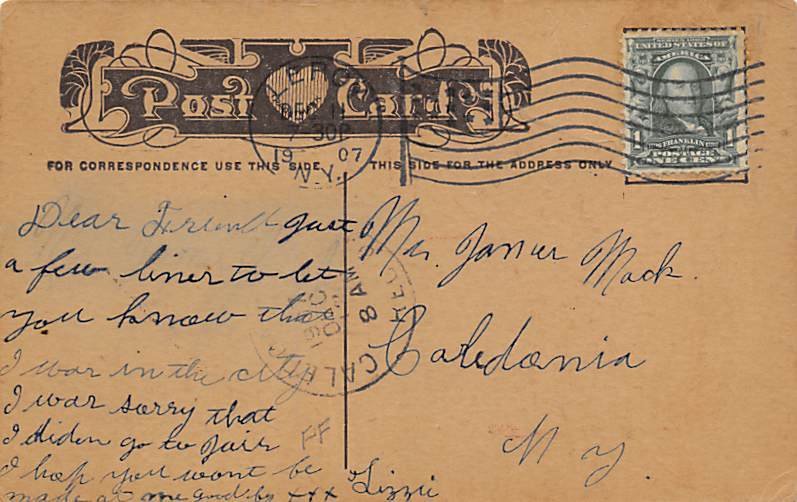 Post Card
LEROY
DEC 11
7-30P
1907
N.Y.
SERIES 1902
UNITED STATES OF
AMERICA
1 FRANKLIN 1
POSTAGE
ONE CENT
FOR CORRESPONDENCE USE THIS SIDE
THIS SIDE FOR THE ADDRESS ONLY
Dear Friend just
a few lines to let
you know that
I was in the city
I was sorry that
I diden go to fair
I hop you wont be
made at me good-by xxx Lizzie
Mr. James Mack.
Caledonia
N Y.
DEC
8 AM
CALE
FF